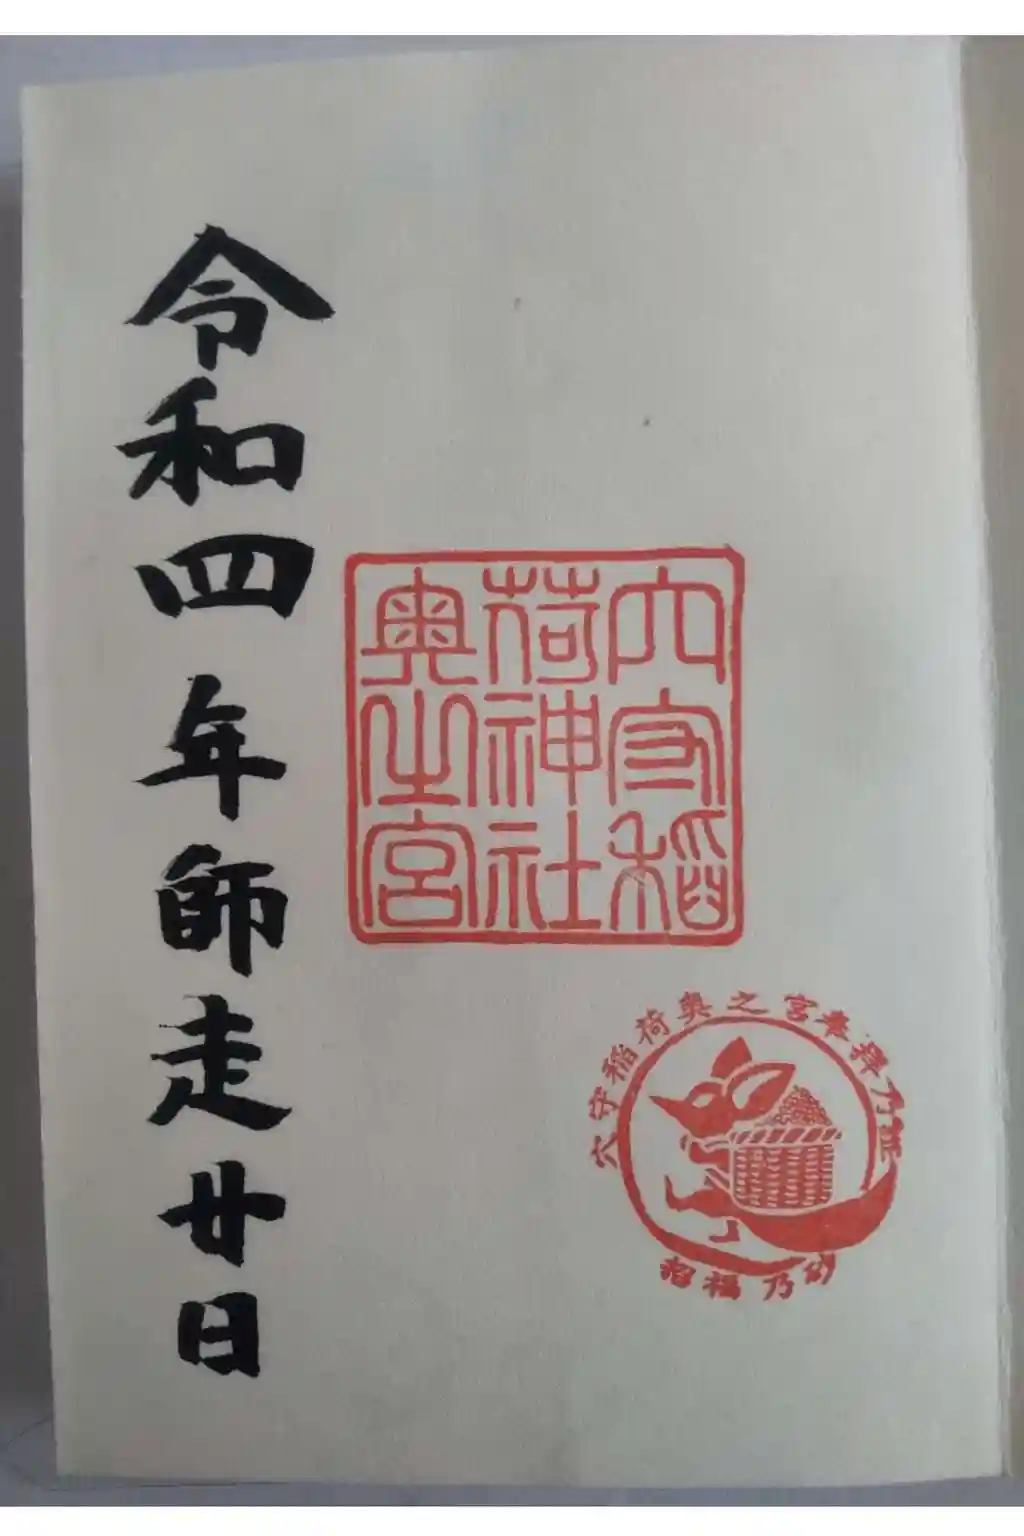 穴守稲
荷神社
奥之宮
令和四年師走廿日
穴守稲荷奥之宮奉拜乃証
招福乃砂